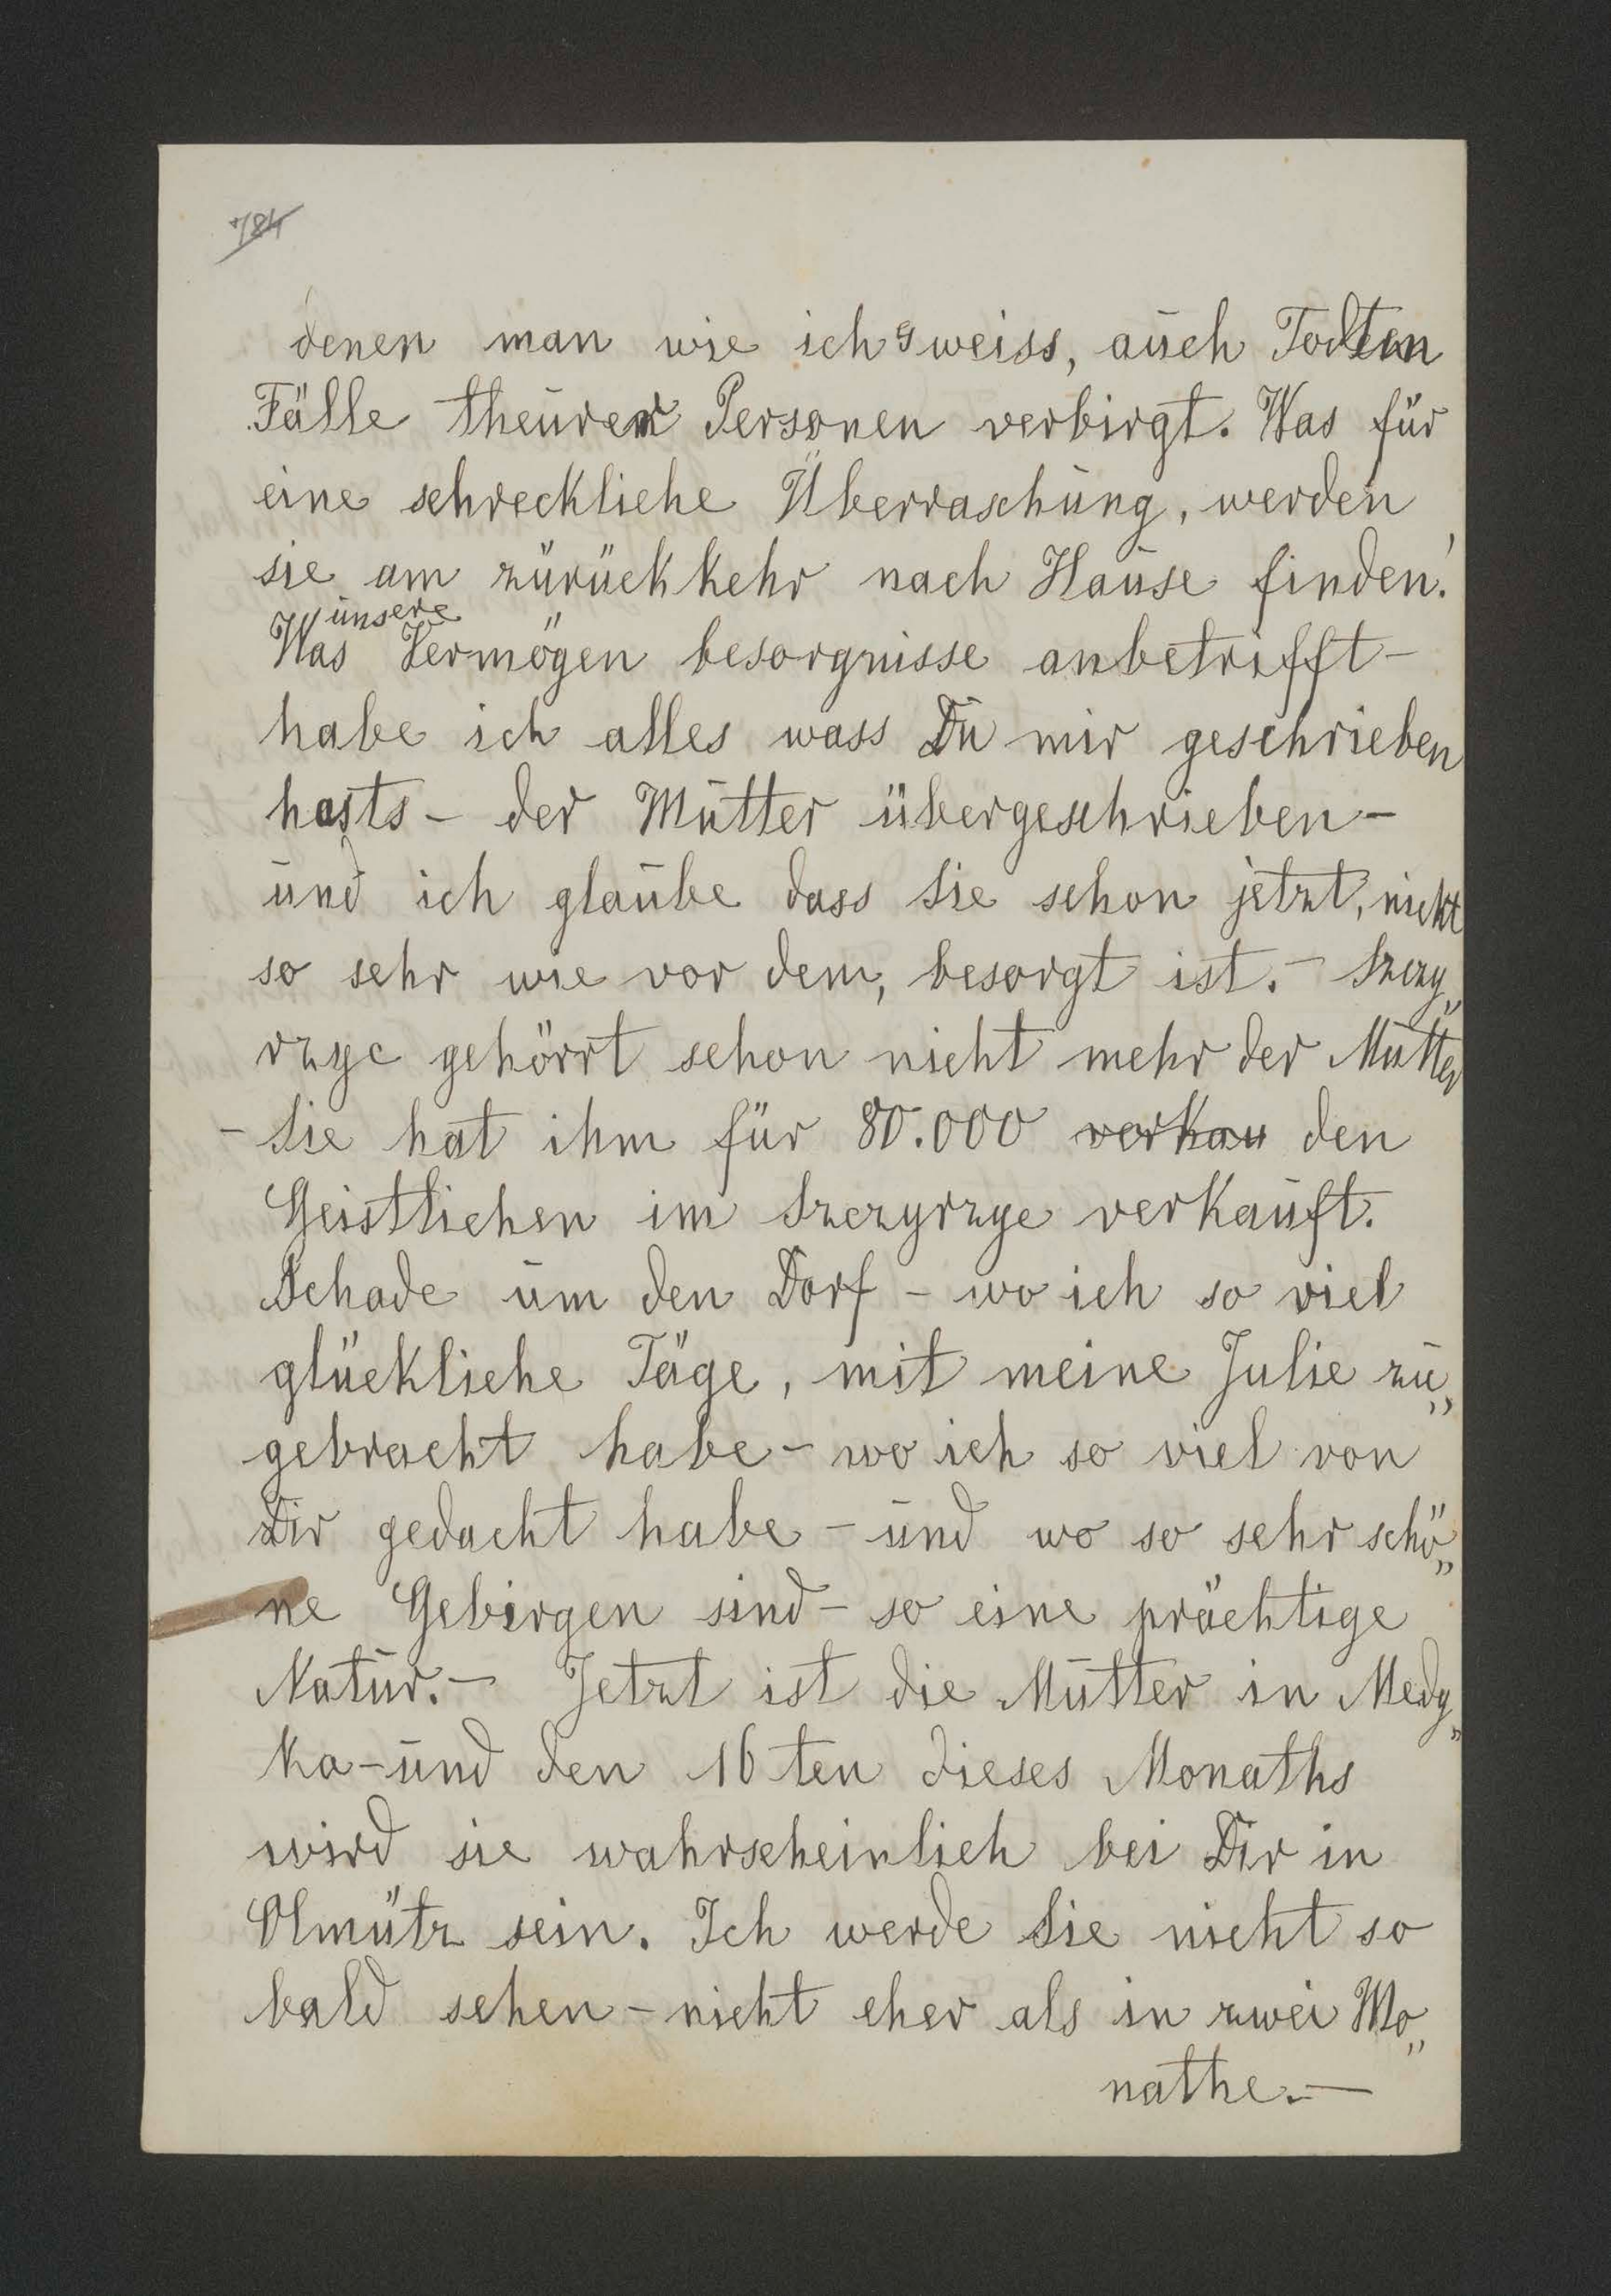 784
denen man wie ich's weiss, auch Todten
Fälle theurer Personen verbirgt. Was für
eine schreckliche Überraschung, werden
sie am zürückkehr nach Hause finden!
unsere
Was Vermögen besorgnisse anbetrifft –
habe ich alles wass Du mir geschrieben
hasts – der Mutter übergeschrieben –
und ich glaube dass Sie schon jetzt, nicht
so sehr wie vor dem, besorgt ist. – Szczy„
rzyc gehörrt schon nicht mehr der Mutter
– Sie hat ihm für 80.000 verkau den
Geistlichen im Szczyrzyc verkauft.
Schade um den Dorf – wo ich so viel
glückliche Täge, mit meine Julie zu„
gebracht habe – wo ich so viel von
Dir gedacht habe – und wo so sehr schö„
ne Gebirgen sind – so eine prächtige
Natur. – Jetzt ist die Mutter in Medy„
ka – und den 16ten dieses Monaths
wird sie wahrscheinlich bei Dir in
Olmütz sein. Ich werde Sie nicht so
bald sehen – nicht eher als in zwei Mo„
nathe. –